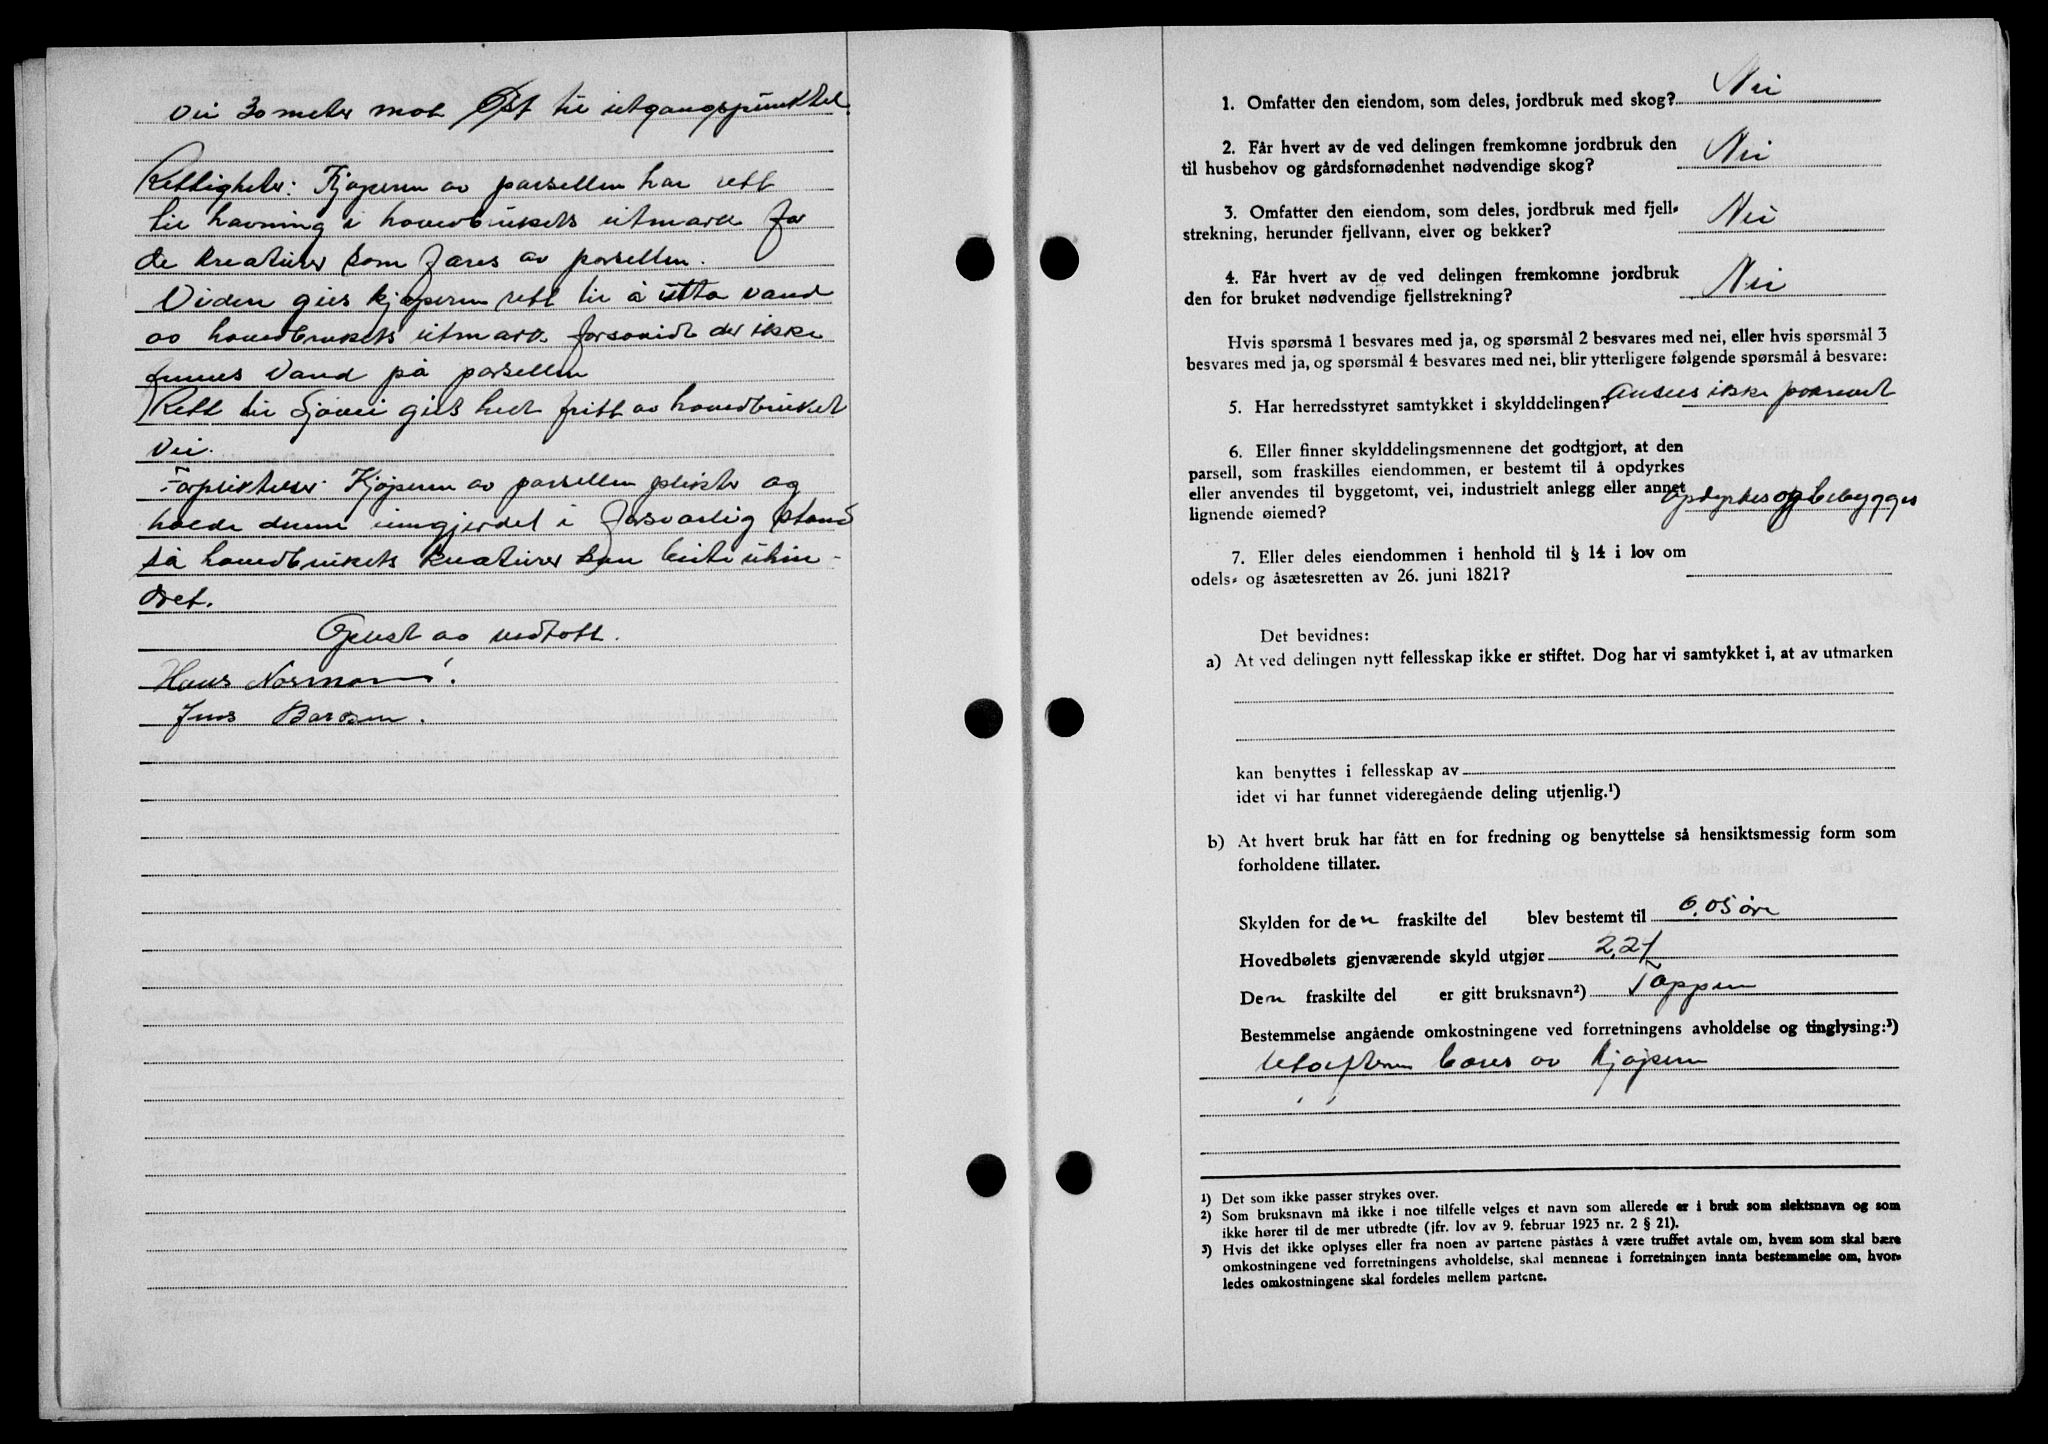 vei 30 meter mot Øst til utgangspunktet.
Rettigheter: Kjøperen av parsellen har rett
til havning i hovedbrukets utmark for
de kreaturer som fores av parsellen.
Viden gies kjøperen rett til å utta vand
av hovedbrukets utmark forsovidt der ikke
finnes vand på parsellen
Rett til sjøvei gies helt fritt av hovedbruket
vei.
Forpliktelser: Kjøperen av parsellen plikter og
holde denne inngjerdet i forsvarlig stand
så hovedbrukets kreaturer kan beite uhin-
dret.
Oplest av vedtatt.
Hans Normann.
Jens Bardsen.
1. Omfatter den eiendom, som deles, jordbruk med skog? Nei
2. Får hvert av de ved delingen fremkomne jordbruk den
til husbehov og gårdsfornødenhet nødvendige skog? Nei
3. Omfatter den eiendom, som deles, jordbruk med fjell-
strekning, herunder fjellvann, elver og bekker? Nei
4. Får hvert av de ved delingen fremkomne jordbruk
den for bruket nødvendige fjellstrekning? Nei
Hvis spørsmå 1 besvares med ja, og spørsmål 2 besvares med nei, eller hvis spørsmål 3
besvares med ja, og spørsmål 4 besvares med nei, blir ytterligere følgende spørsmål å besvare:
5. Har herredsstyret samtykket i skylddelingen? Ansees ikke påkrevet
6. Eller finner skylddelingsmennene det godtgjort, at den
parsell, som fraskilles eiendommen, er bestemt til å opdyrkes
eller anvendes til byggetomt, vei, industrielt anlegg eller annet
lignende øiemed? Opdyrkes og bebygges
7. Eller deles eiendommen i henhold til § 14 i lov om
odels- og åsætesretten av 26. juni 1821?
Det bevidnes:
a) At ved delingen nytt fellesskap ikke er stiftet. Dog har vi samtykket i, at av utmarken
kan benyttes i fellesskap av
idet vi har funnet videregående deling utjenlig.¹)
b) At hvert bruk har fått en for fredning og benyttelse så hensiktsmessig form som
forholdene tillater.
Skylden for den fraskilte del blev bestemt til 0,05 øre
Hovedbølets gjenværende skyld utgjør 2,21
Den fraskilte del er gitt bruksnavn²) Toppen
Bestemmelse angående omkostningene ved forretningens avholdelse og tinglysing:³)
Utgiftene bæres av kjøperen
¹) Det som ikke passer strykes over.
²) Som bruksnavn må ikke i noe tilfelle velges et navn som allerede er i bruk som slektsnavn og som
ikke hører til de mer utbredte (jfr. lov av 9. februar 1923 nr. 2 § 21).
³) Hvis det ikke oplyses eller fra noen av partene påståes å være truffet avtale om, hvem som skal bære
omkostningene ved forretningens avholdelse, skal mennene i forretningen innta bestemmelse om, hvor-
ledes omkostningene skal fordeles mellem partene.